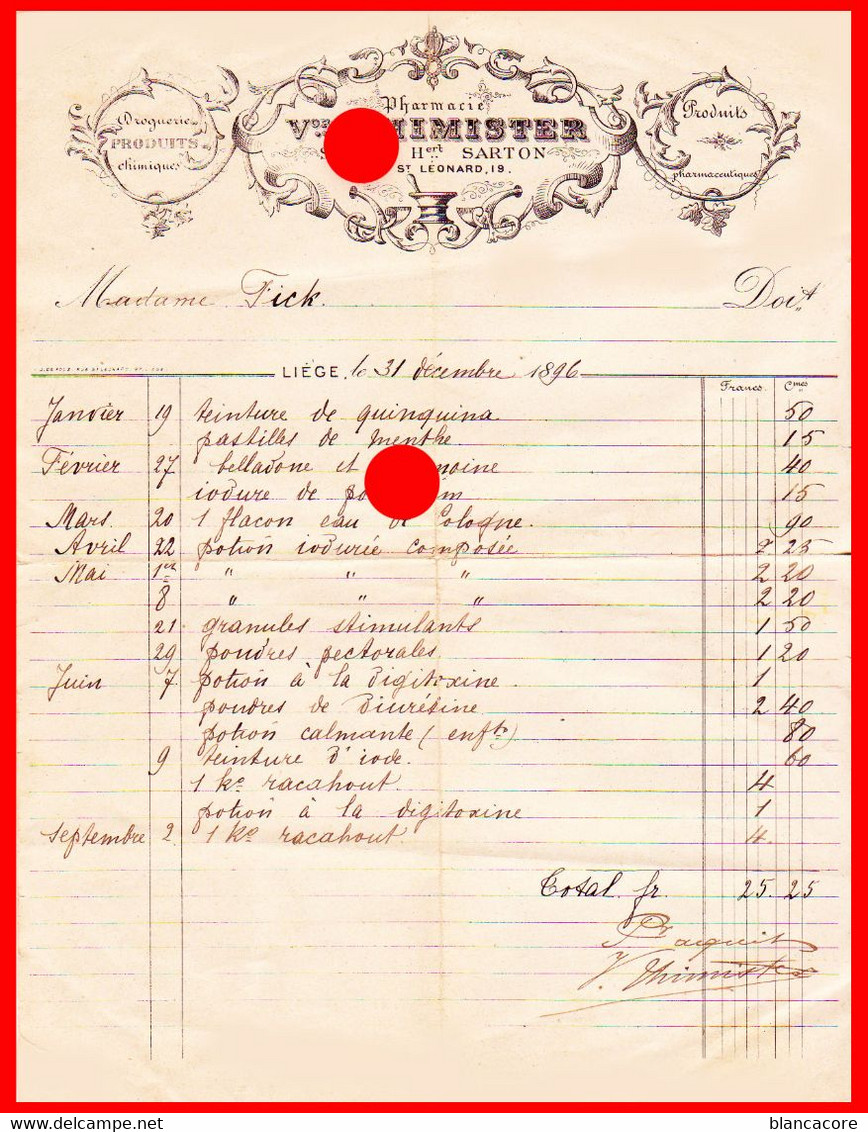 Droguerie
PRODUITS
chimiques
Pharmacie
Vor HIMISTER
S Hert SARTON
ST LÉONARD, 19.
Produits
pharmaceutiques
Madame Fick. Doit
LIÉGE, le 31 décembre 1896
Francs. Cmes
Janvier 19 teinture de quinquina 50
pastilles de menthe 15
Février 27 belladone et moine 40
iodure de po m 15
Mars. 20 1 flacon eau de Cologne. 90
Avril 22 potion iodurée composée 2 25
Mai 1er " " " 2 20
8 " " " 2 20
21 granules stimulants 1 50
29 poudres pectorales 1 20
Juin 7 potion à la digitoxine 1
poudres de Diurésine 2 40
potion calmante (enft) 80
9 teinture d'iode. 60
1 ko racahout. 4
potion à la digitoxine 1
septembre 2 1 ko racahout. 4.
Total fr. 25. 25
Pr acquit
V. Thimister
blancacore